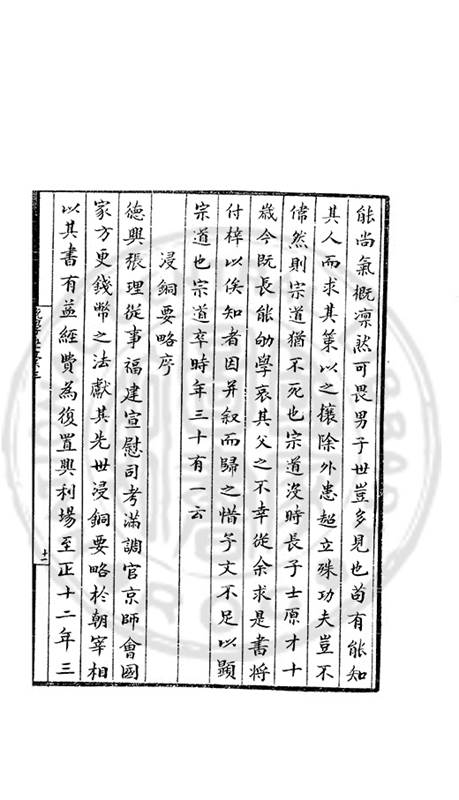 能尚氣概凛然可畏男子世豈多見也苟有能知
其人而求其策以之攘除外患超立殊功夫豈不
偉然則宗道猶不死也宗道沒時長子士原才十
歲今既長能幼學哀其父之不幸從余求是書將
付梓以俟知者因并叙而歸之惜乎文不足以顯
宗道也宗道卒時年三十有一云
浸銅要略序
德興張理從事福建宣慰司考滿調官京師會國
家方更錢幣之法獻其先世浸銅要略於朝宰相
以其書有益經費為復置興利場至正十二年三
十一